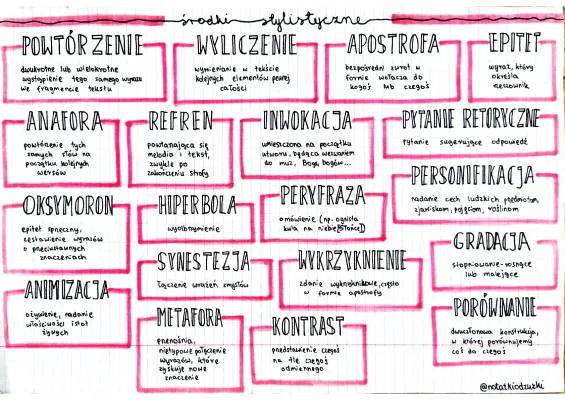 środki stylistyczne
POWTÓRZENIE
dwukrotne lub wielokrotne
wystąpienie tego samego wyrazu
we fragmencie tekstu
WYLICZENIE
wymienianie w tekście
kolejnych elementów pewnej
całości
APOSTROFA
bezpośredni zwrot w
formie wołacza do
kogoś lub czegoś
EPITET
wyraz, który
określa
rzeczownik
ANAFORA
powtórzenie tych
samych słów na
początku kolejnych
wersów
REFREN
powtarzająca się
melodia i tekst,
zwykle po
zakończeniu strofy
INWOKACJA
umieszczona na początku
utworu, będąca wezwaniem
do muz, Boga, bogów...
PYTANIE RETORYCZNE
pytanie sugerujące odpowiedź
OKSYMORON
epitet sprzeczny,
zestawienie wyrazów
o przeciwstawnych
znaczeniach
HIPERBOLA
wyolbrzymienie
PERYFRAZA
omówienie (np. ognista
kula na niebie [słońce])
PERSONIFIKACJA
nadanie cech ludzkich przedmiotom,
zjawiskom, pojęciom, roślinom
SYNESTEZJA
łączenie wrażeń zmysłów
WYKRZYKNIENIE
zdanie wykrzyknikowe, często
w formie apostrofy
GRADACJA
stopniowanie-rosnące
lub malejące
ANIMIZACJA
ożywienie, nadanie
właściwości istot
żywych
METAFORA
przenośnia,
nietypowe połączenie
wyrazów, które
zyskuje nowe
znaczenie
KONTRAST
przedstawienie czegoś
na tle czegoś
odmiennego
PORÓWNANIE
dwuczłonowa konstrukcja,
w której porównujemy
coś do czegoś
@notatkiodzuzki